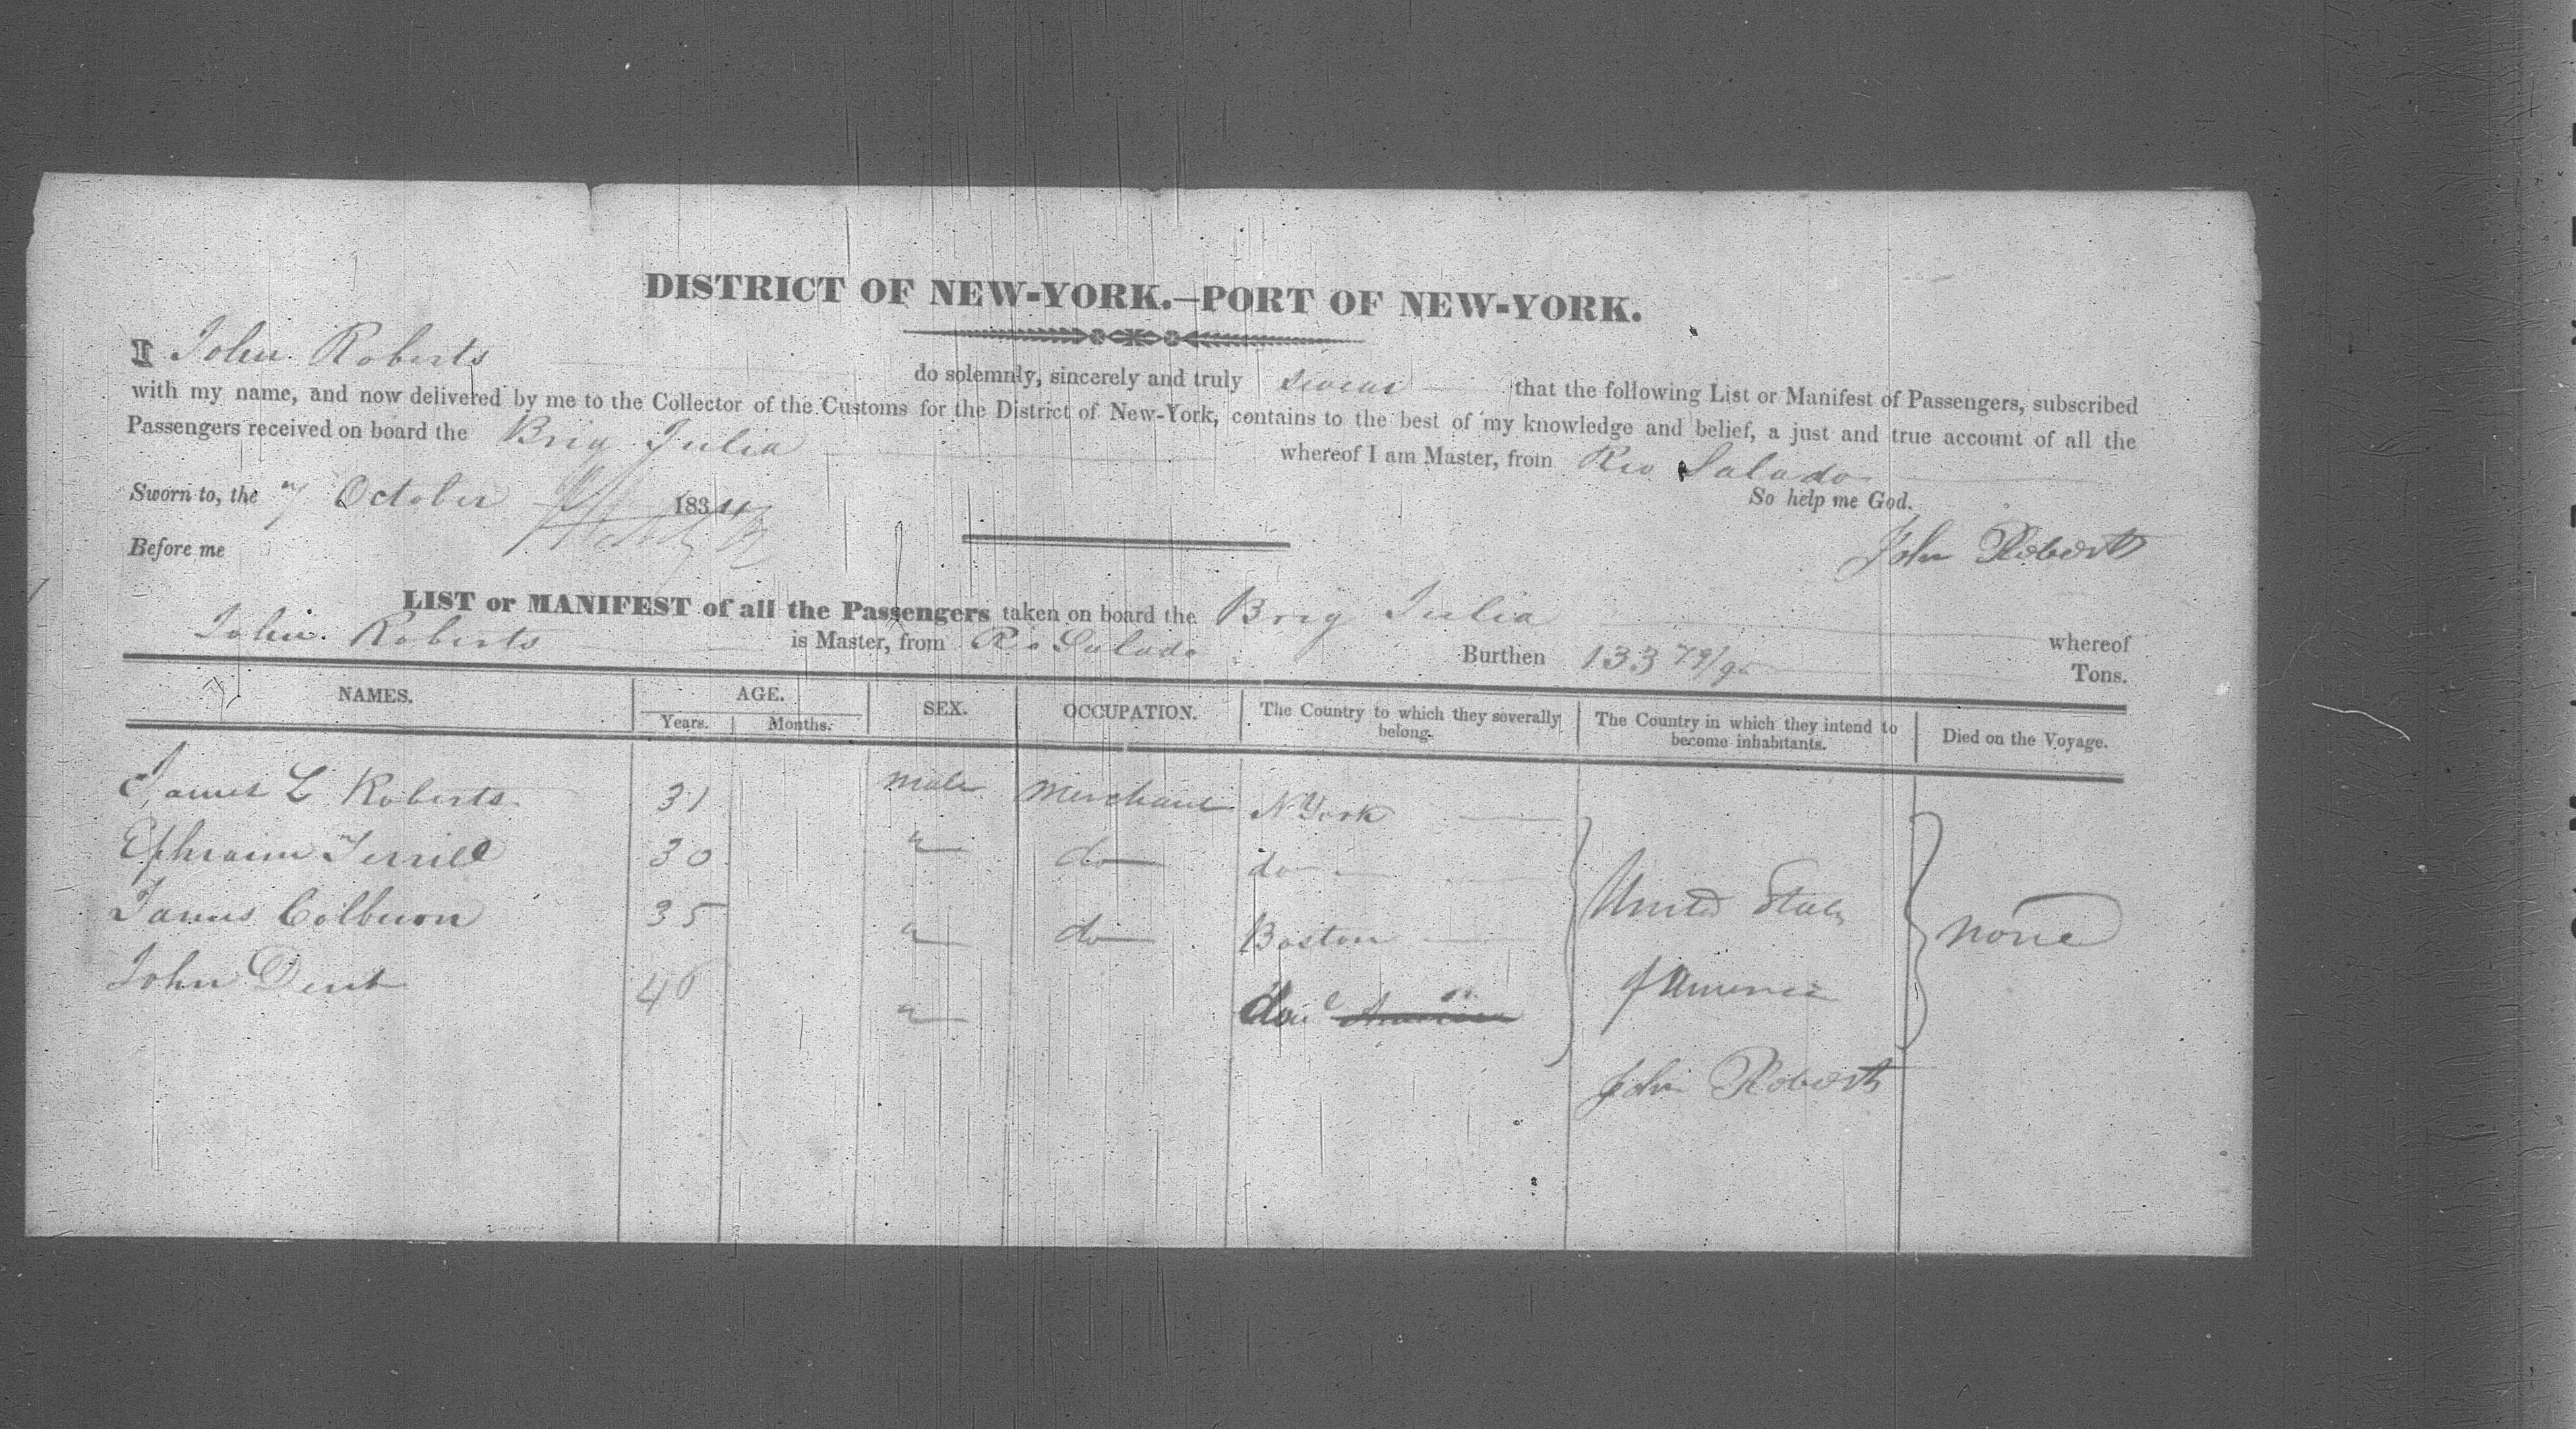 DISTRICT OF NEW-YORK.—PORT OF NEW-YORK.
I John Roberts do solemnly, sincerely and truly swear that the following List or Manifest of Passengers, subscribed
with my name, and now delivered by me to the Collector of the Customs for the District of New-York, contains to the best of my knowledge and belief, a just and true account of all the
Passengers received on board the Brig Julia whereof I am Master, from Rio Salado
Sworn to, the 7 October 1834 So help me God.
Before me John Roberts
LIST or MANIFEST of all the Passengers taken on board the Brig Julia whereof
John Roberts is Master, from Rio Salado Burthen 133 79/95 Tons.
NAMES. AGE. Years. Months. SEX. OCCUPATION. The Country to which they severally belong. The Country in which they intend to become inhabitants. Died on the Voyage.
James L Roberts 31 Male Merchant N York
Ephraim Terrill 30 " do do
James Colburn 35 " do Boston United States none
John Dent 46 " do of America
John Roberts